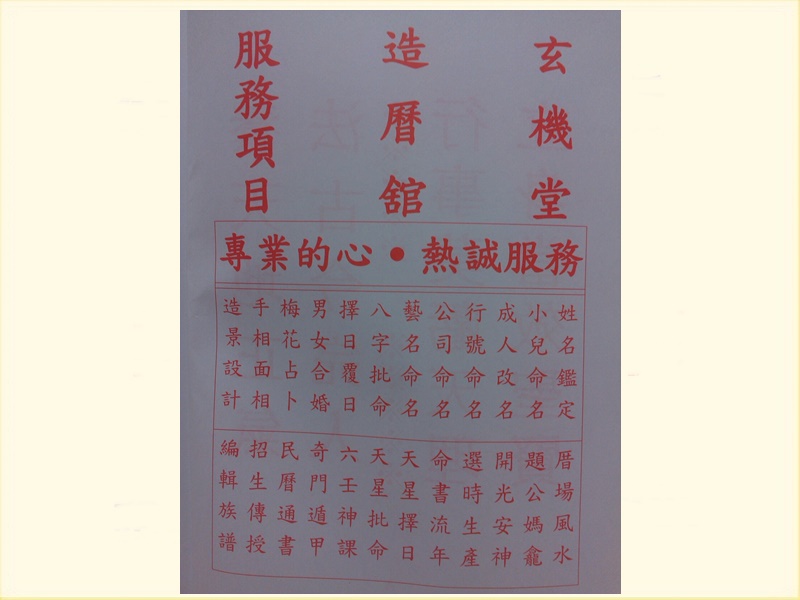 玄機堂
造曆舘
服務項目
專業的心•熱誠服務
姓名鑑定
小兒命名
成人改名
行號命名
公司命名
藝名命名
八字批命
擇日覆日
男女合婚
梅花占卜
手相面相
造景設計
厝場風水
題公媽龕
開光安神
選時生產
命書流年
天星擇日
天星批命
六壬神課
奇門遁甲
民曆通書
招生傳授
編輯族譜